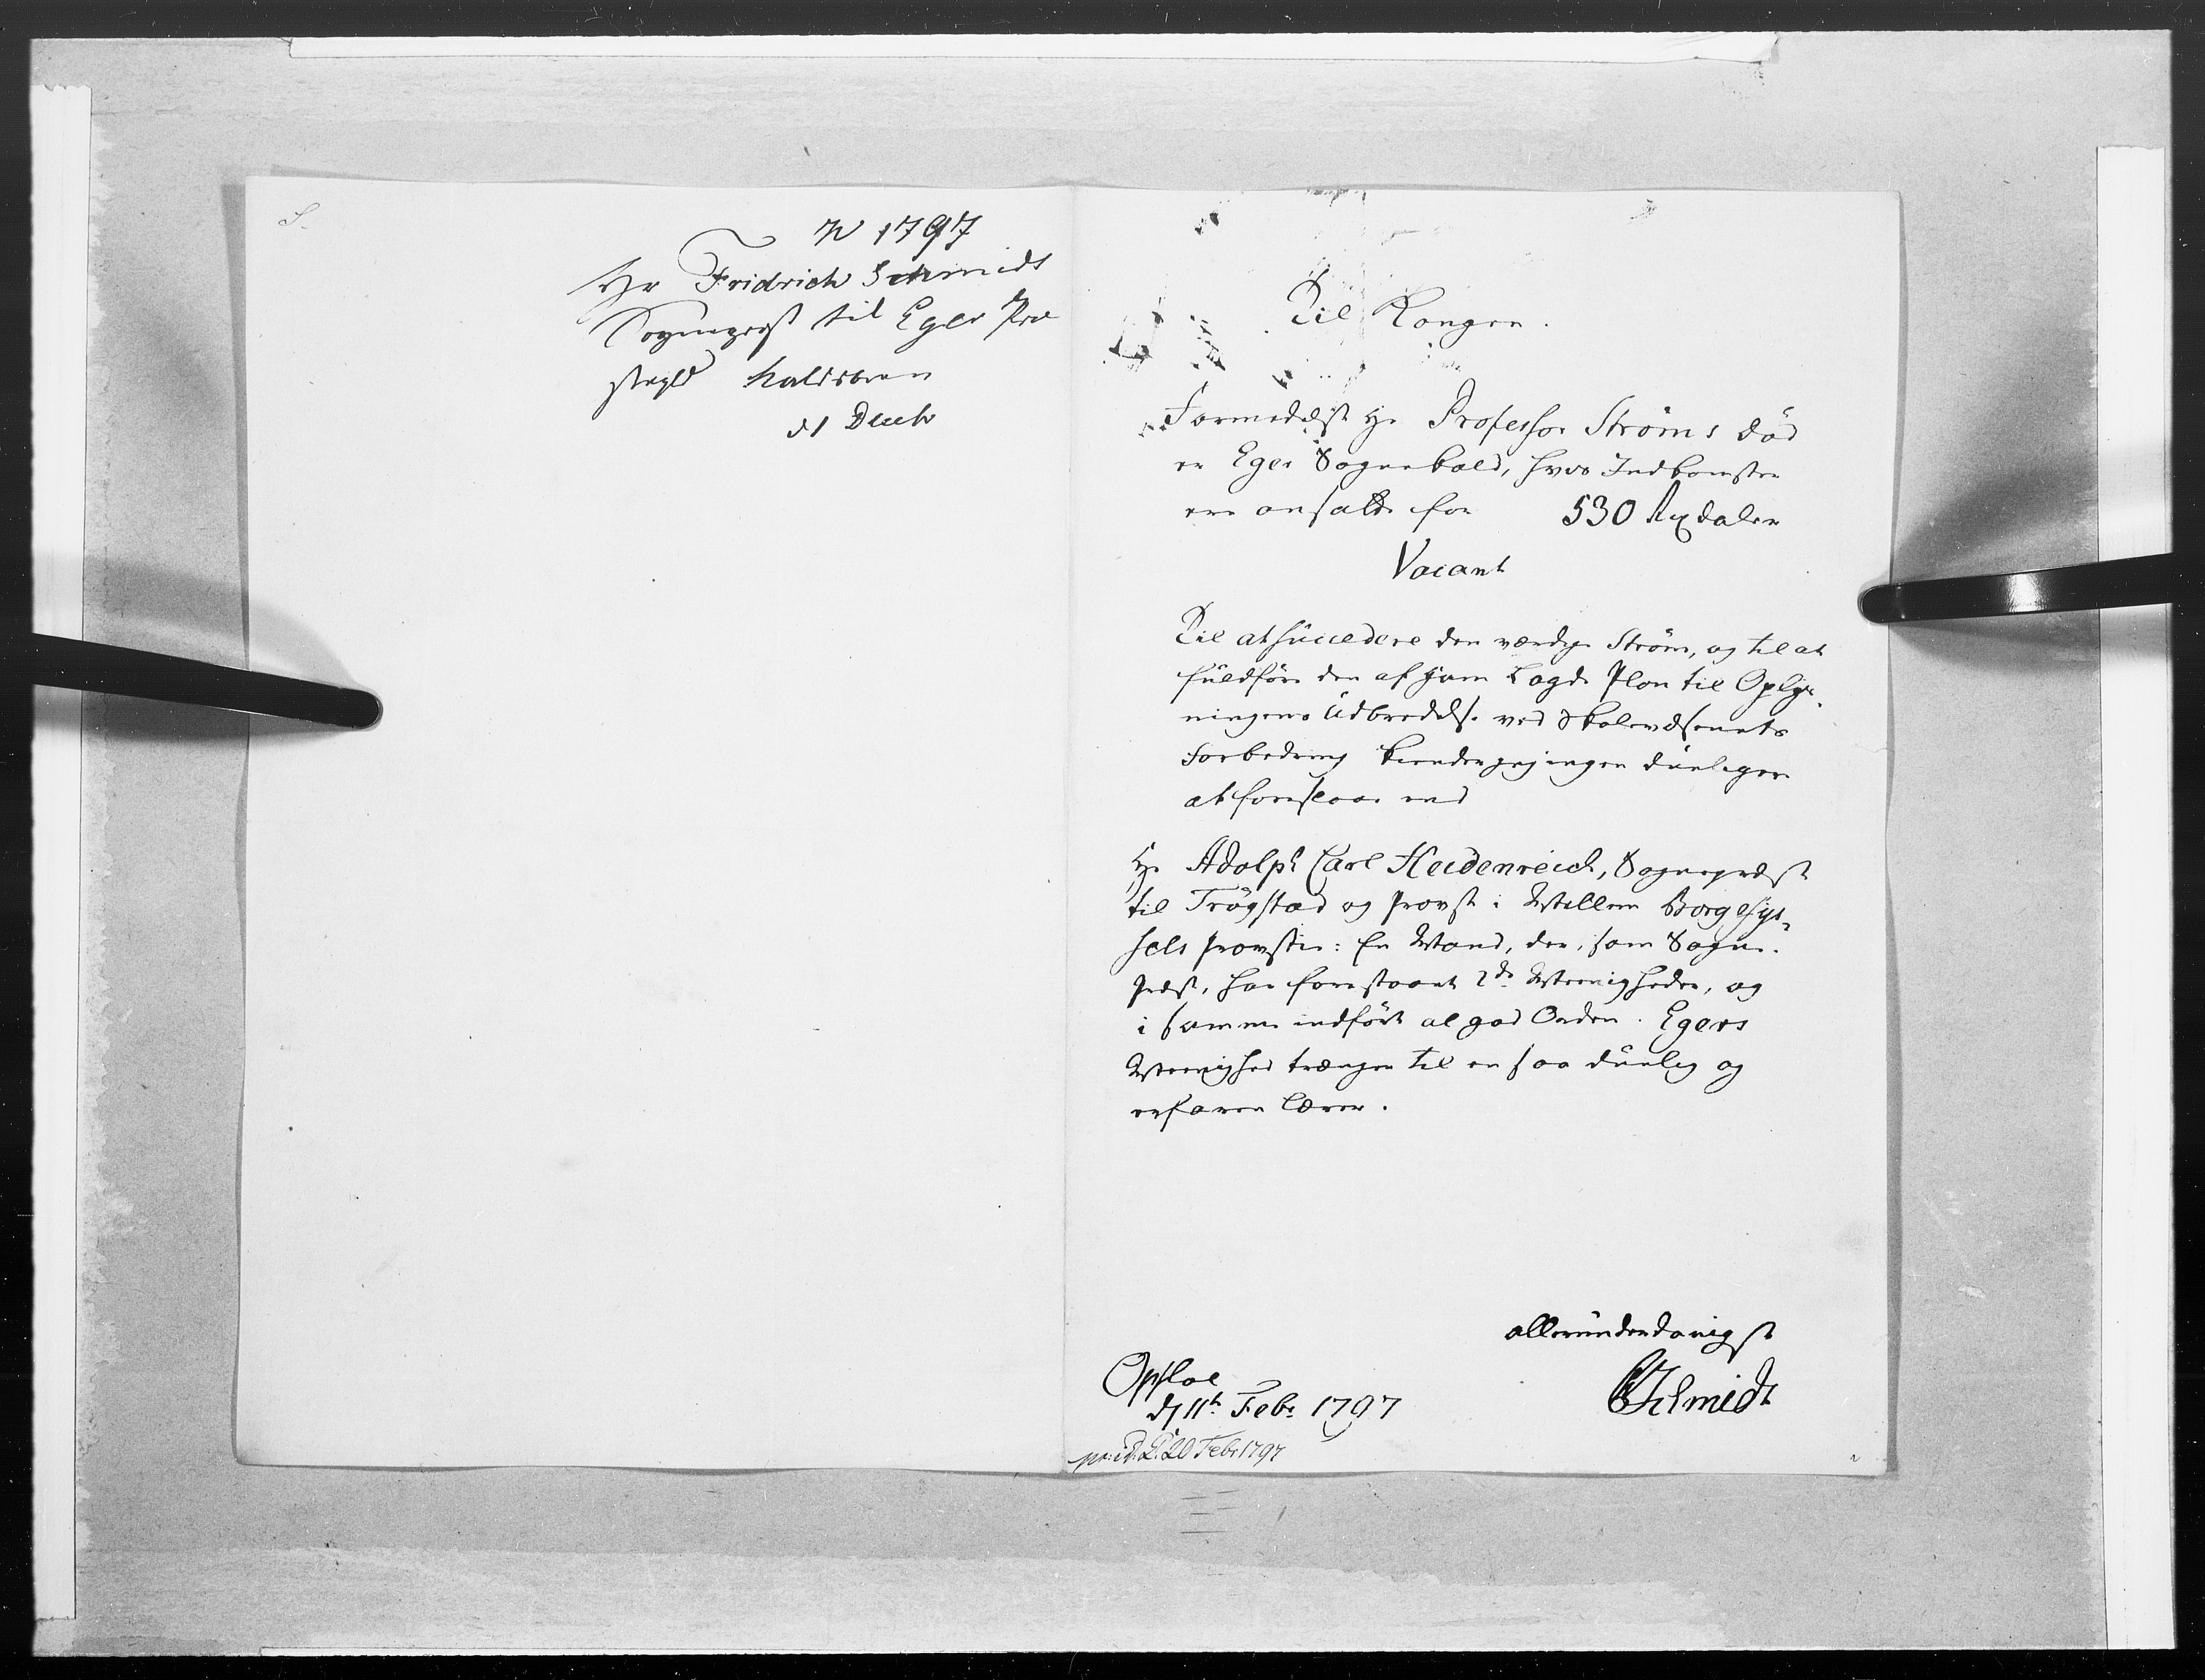 1797
Hr Fridrich Schmidt
Sognepræst til Eger Præ
stegield kaldsbrev
d 1 Dech
Til Kongen.
Formedelst Hr Professor Strøms död
er Eger Sognekald, hvis Indkomster
ere ansatte for 530 Rixdaler
Vacant
Til at succedere den værdige Strøm, og til at
fuldföre den af ham lagde Plan til Oplys-
ningens Udbredelse ved Skolevæsenets
Forbedring kiender jeg ingen duelige
at foreslaae end
Hr Adolph Carl Heidenreich, Sognepræst
til Trögstad og Provst i Mellem Borgesys-
sels Provstie: En Mand, der, som Sogne-
Præst, har forestaaet 2de Menigheder, og
i samme indfört al god Orden. Egers
Menighed trænger til en saa duelig og
erfaren Lærer.
allerunderdanigst
Opsloe
d 11te Febr 1797
Schmidt
pr: d: 20 Febr 1797